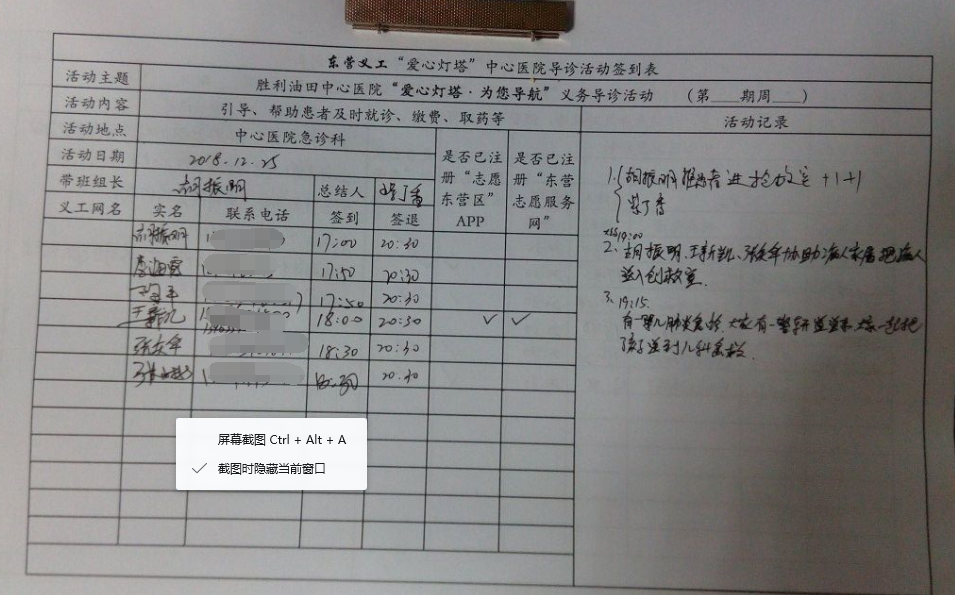 东营义工“爱心灯塔”中心医院导诊活动签到表
活动主题 胜利油田中心医院“爱心灯塔·为您导航”义务导诊活动 (第___期周___)
活动内容 引导、帮助患者及时就诊、缴费、取药等
活动地点 中心医院急诊科
活动日期 2018.12.25
带班组长 胡振明 总结人
义工网名 实名 联系电话 签到 签退 是否已注册“志愿东营区”APP 是否已注册“东营志愿服务网”
胡振明 17:00 20:30
17:50 20:30
17:50 20:30
18:00 20:30 ✓ ✓
18:30 20:30
18:30 20:30
活动记录
1. 胡振明 进抢救室 +1+1
19:00
2. 胡振明、王新凯、 协助病人家属把病人
送入创救室.
3. 19:15.
有一 大家一起把
孩子送到儿科
屏幕截图 Ctrl + Alt + A
截图时隐藏当前窗口